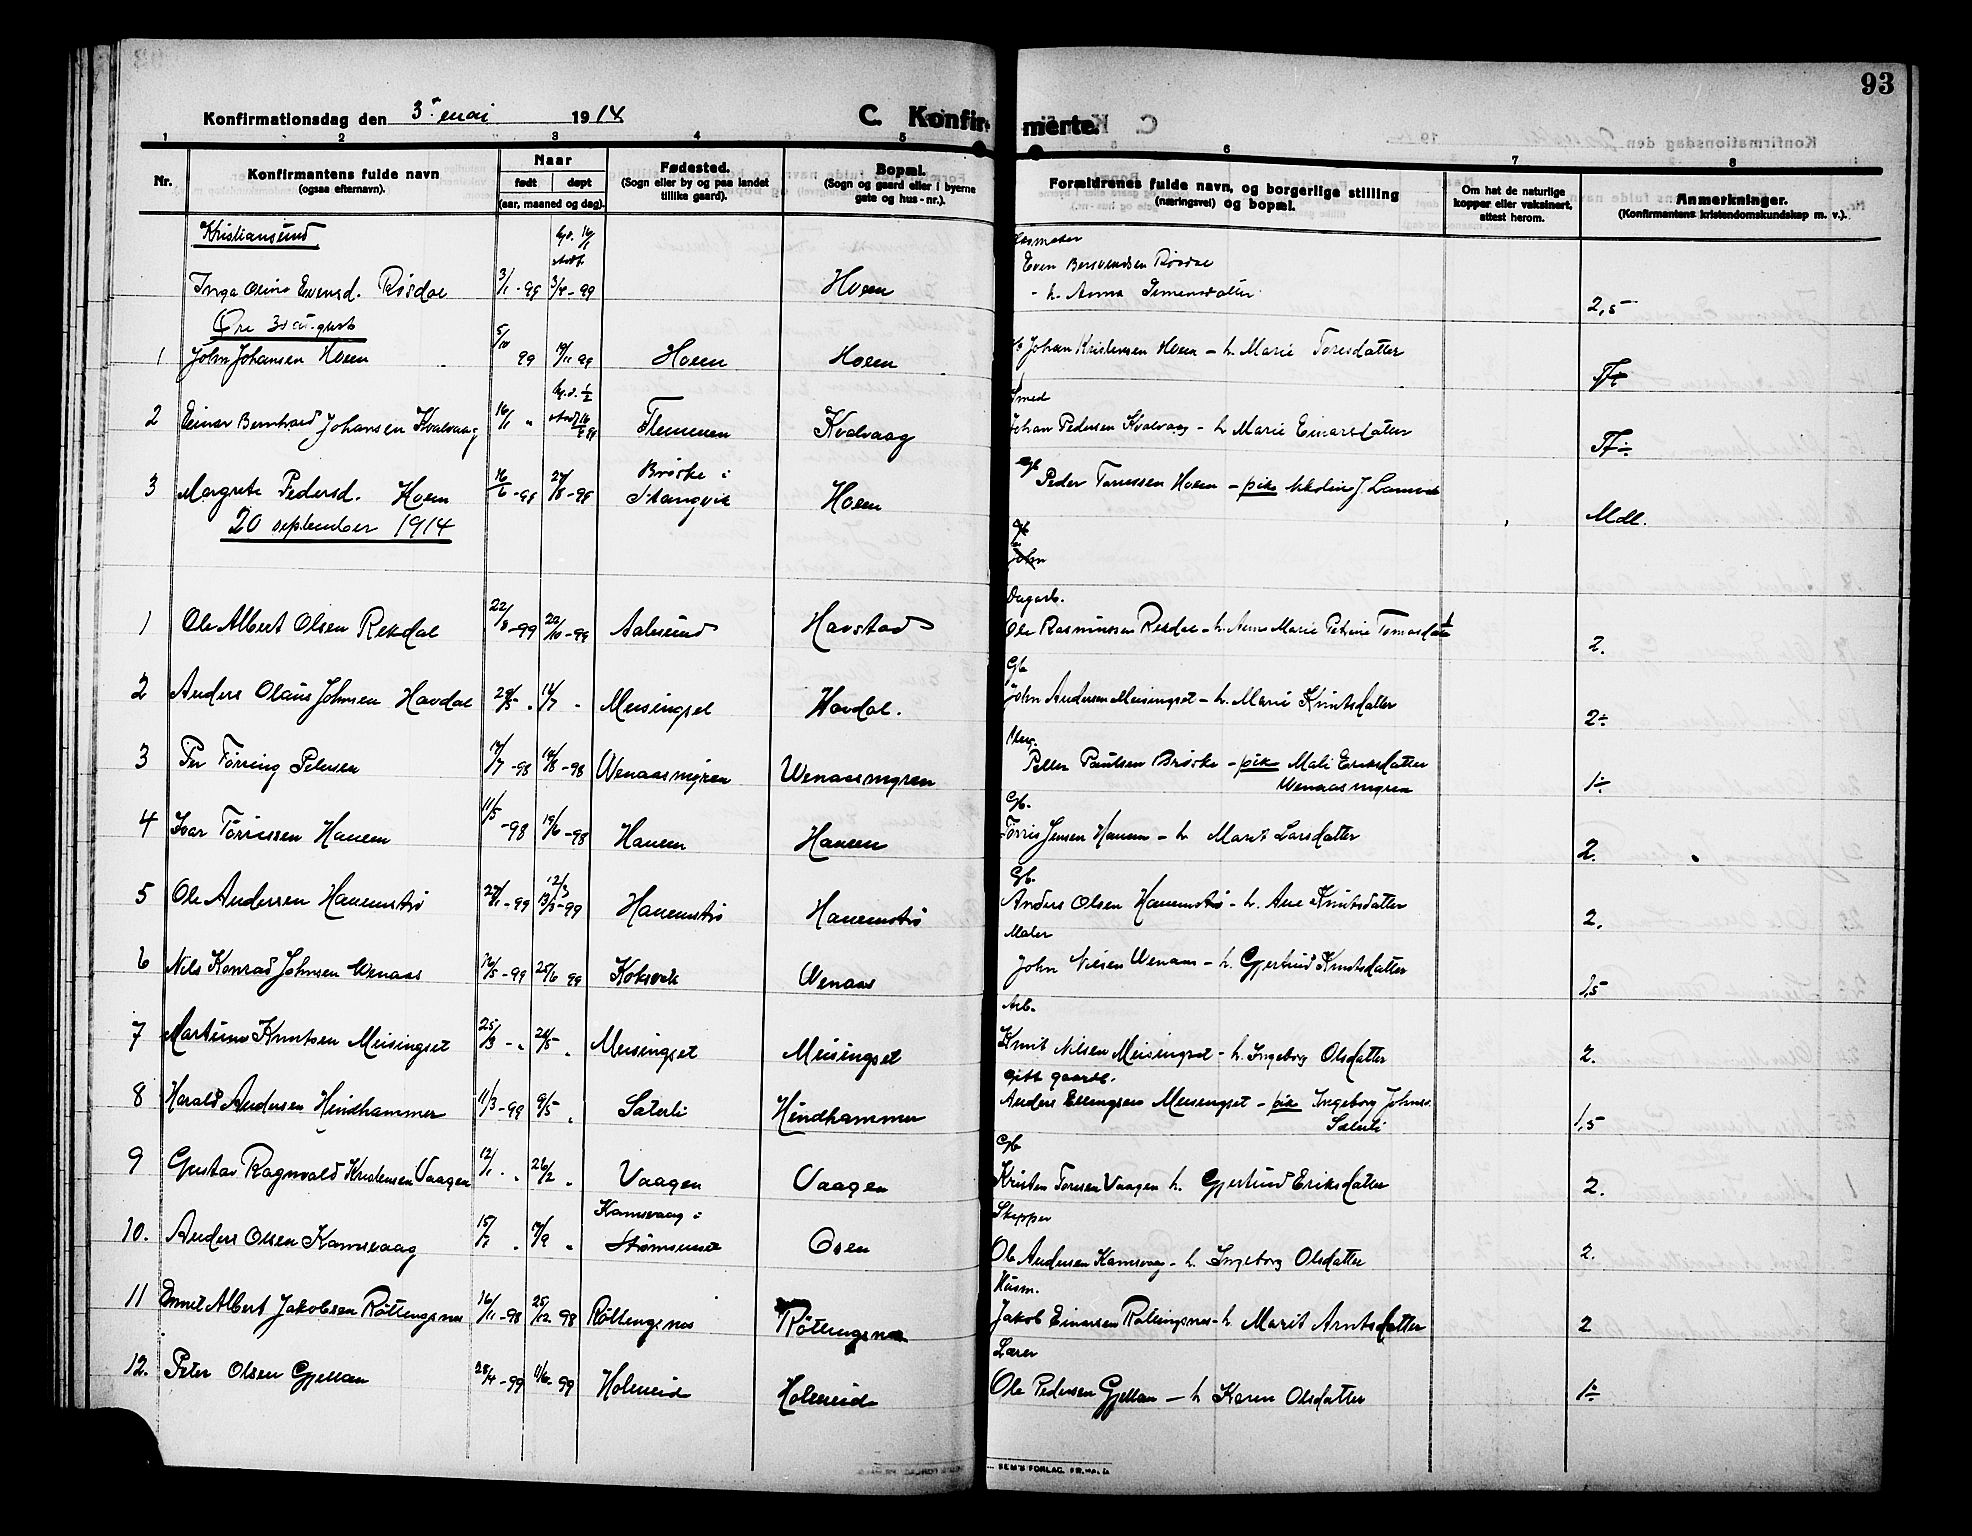 93
Konfirmationsdag den 3. mai 1914
C. Konfirmerte.
1 2 3 4 5 6 7 8
Nr.
Konfirmantens fulde navn
(ogsaa efternavn).
Naar
født døpt
(aar, maaned og dag).
Fødested.
(Sogn eller by og paa landet
tillike gaard).
Bopæl.
(Sogn og gaard eller i byerne
gate og hus-nr.).
Forældrenes fulde navn, og borgerlige stilling
(næringsvei) og bopæl.
Om hat de naturlige
kopper eller vaksinert,
attest herom.
Anmerkninger.
(Konfirmantens kristendomskundskap m. v.).
Kristiansund
Inga Olina Evensd. Røsdal 3/1-99 3/4-99 Hoem
- h. Anna Simensdatter 2,5
1 John Johansen Hoem 5/10 99 19/11 99 Hoem Hoem Johan Kristensen Hoem - h. Marie Toresdatter
Smed
2 Einar Bernhard Johansen Kvalvaag 16/1 " Flemmen Kvalvaag Johan Pedersen Kvalvaag - h Marie Einarsdatter
Brøske i
3 Margrete Pedersd. Hoem 16/6-98 27/8-98 Stangvik Hoem Peder Hoem - pike Mdl.
20 september 1914
Gb
John
Dagarb.
1 Ole Albert Olsen Rekdal 22/8-99 22/10-99 Aalesund Havstad Ole Rasmussen Rekdal - h. Anne Marie Petrine Tomasdatter 2.
Gb
2 Anders Olaus Johnsen Havdal 29/5 " 14/7 " Meisingset Havdal. John Andersen Meisingset - h. Marie Knutsdatter 2÷
3 Per Tørring Petersen 17/7-98 14/8-98 Wenaasmyren Wenaasmyren Petter Paulsen Brøske - pike Mali Eriksdatter 1÷
Wenaasmyren
Gb.
4 Ivar Tørrissen Hanem 11/5-98 19/6-98 Hanem Hanem Tørris Jensen Hanem - h Marit Larsdatter 2.
Gb.
5 Ole Andersen Hanemstrø 27/1-99 12/3 13/3-99 Hanemstrø Hanemstrø Anders Olsen Hanemstrø - h. Ane Knutsdatter 2.
Maler
6 Nils Konrad Johnsen Wenaas 16/5-99 25/6 99 Koksvik Wenaas John Nilsen Wenaas - h. Gjertrud Knutsdatter 1,5
Arb.
7 Martinus Knutsen Meisingset 25/3 - " 21/5 " Meisingset Meisingset Knut Nilsen Meisingset - h. Ingeborg Olsdatter 2.
Gift gaardb.
8 Harald Andersen Hindhammer 11/3-99 9/5 " Saterli Hindhammer Anders Ellingsen Meisingset - pike Ingeborg Johnsd. 1,5
Saterli
Gb
9 Gustav Ragnvald Kristensen Vaagen 12/1 " 26/2 " Vaagen Vaagen Kristen Toresen Vaagen h. Gjertrud Eriksdatter 2.
Kamsvaag i
Skipper
10. Anders Olsen Kamsvaag 15/7 " 17/9 " Strømsund Osen Ole Andersen Kamsvaag - h. Ingeborg Olsdatter 2.
Husm.
11 Emil Albert Jakobsen Røttingsnes 16/11-98 25/12 98 Røttingsnes Røttingsnes Jakob Einarsen Røttingsnes - h Marit Arntsdatter 2
Lærer
12. Peter Olsen Gjellan 28/4-99 11/6-99 Holmeid Holmeid Ole Pedersen Gjellan - h Karen Olsdatter 1÷
SEM'S FORLAG, FR.HALD